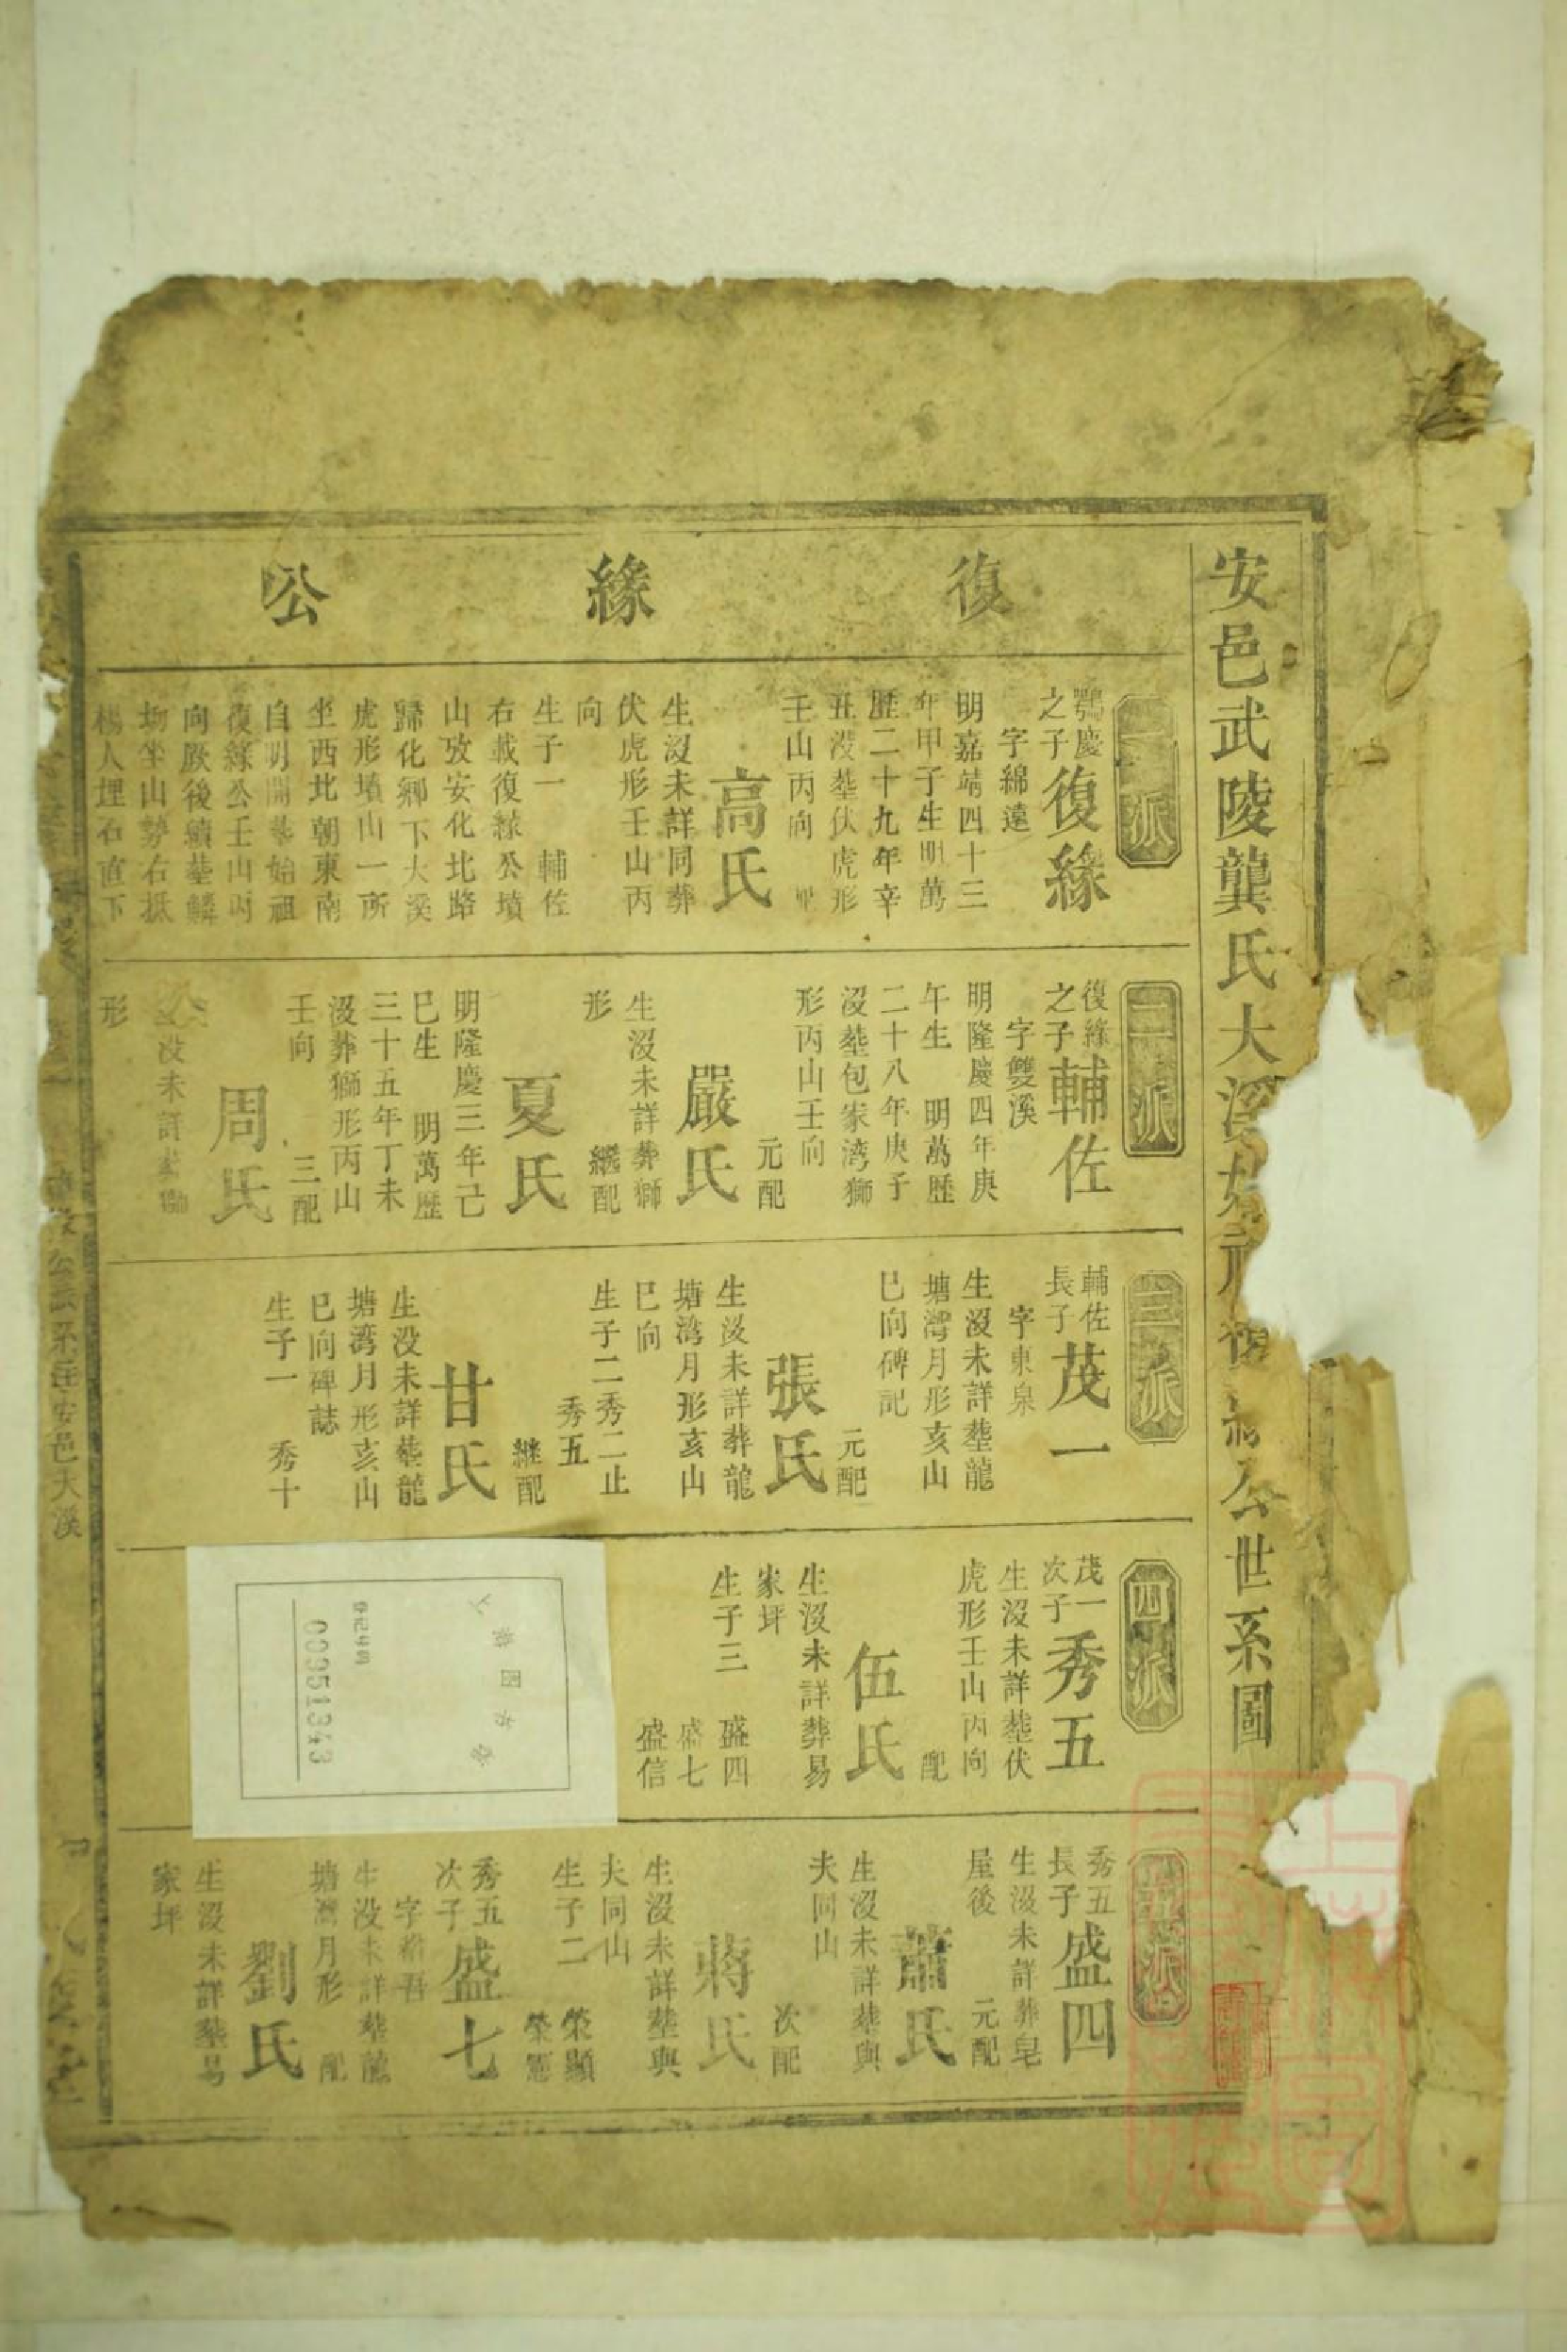 安邑武陵龔氏大溪始祖復緣公世系圖
復緣公
一派
鶚慶
之子
復緣
字綿遠
明嘉靖四十三
年甲子生明萬
歷二十九年辛
丑沒塟伏虎形
壬山丙向 配
高氏
生沒未詳同葬
伏虎形壬山丙
向
生子一 輔佐
右載復緣公墳
山攷安化北路
歸化鄉下大溪
虎形墳山一所
坐西北朝東南
自明開塟始祖
復緣公壬山丙
向厥後續塟鱗
坐山勢右抵
楊人埋石直下
二派
復緣
之子
輔佐
字雙溪
明隆慶四年庚
午生 明萬歷
二十八年庚子
沒塟包家湾獅
形丙山壬向
元配
嚴氏
生沒未詳葬獅
形
繼配
夏氏
明隆慶三年己
巳生 明萬歷
三十五年丁未
沒葬獅形丙山
壬向
三配
周氏
沒未詳塟獅
形
三派
輔佐
長子
茂一
字東泉
生沒未詳塟龍
塘灣月形亥山
巳向碑記
元配
張氏
生沒未詳葬龍
塘湾月形亥山
巳向
生子二秀二止
秀五
継配
甘氏
生没未詳塟龍
塘湾月形亥山
巳向碑誌
生子一 秀十
四派
茂一
次子
秀五
生沒未詳塟伏
虎形壬山丙向
配
伍氏
生沒未詳葬易
家坪
生子三 盛四
盛七
盛信
上海图书馆
登记号码
0951343
五派
秀五
長子
盛四
生沒未詳葬皂
屋後
元配
蕭氏
生沒未詳塟與
夫同山
次配
蔣氏
生沒未詳塟與
夫同山
生子二 榮顯
榮憲
秀五
次子
盛七
生没未詳塟龍
塘灣月形 配
劉氏
生沒未詳塟易
家坪
公派系在安邑大溪